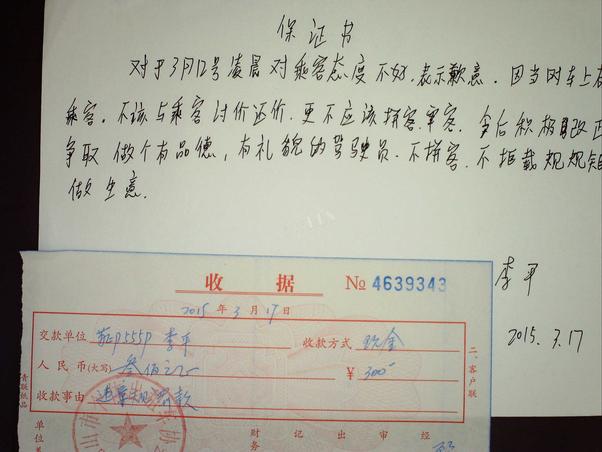 保证书
对于3月12号凌晨对乘客态度不好.表示歉意.因当时车上有
乘客.不该与乘客讨价还价.更不应该拼客.宰客.今后积极改正
争取做个有品德,有礼貌的驾驶员.不拼客.不拒载规规矩
做生意.
李平
2015.3.17
收 据 № 4639343
2015年3月17日
交款单位 李平 收款方式 现金
人民币(大写) 叁佰元 ¥ 300
收款事由 违章 款
二、客户联
青联纸品
山市
单位
财务
记
出
审
经